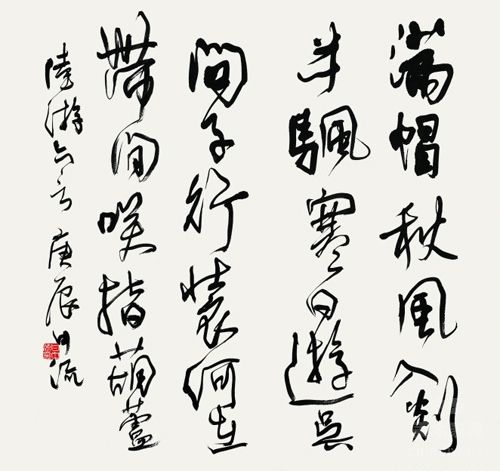 滿帽秋風入剡
半颿寒日遊吳
問子行裝何在
帶間咲指葫蘆
陸游六言 庚辰